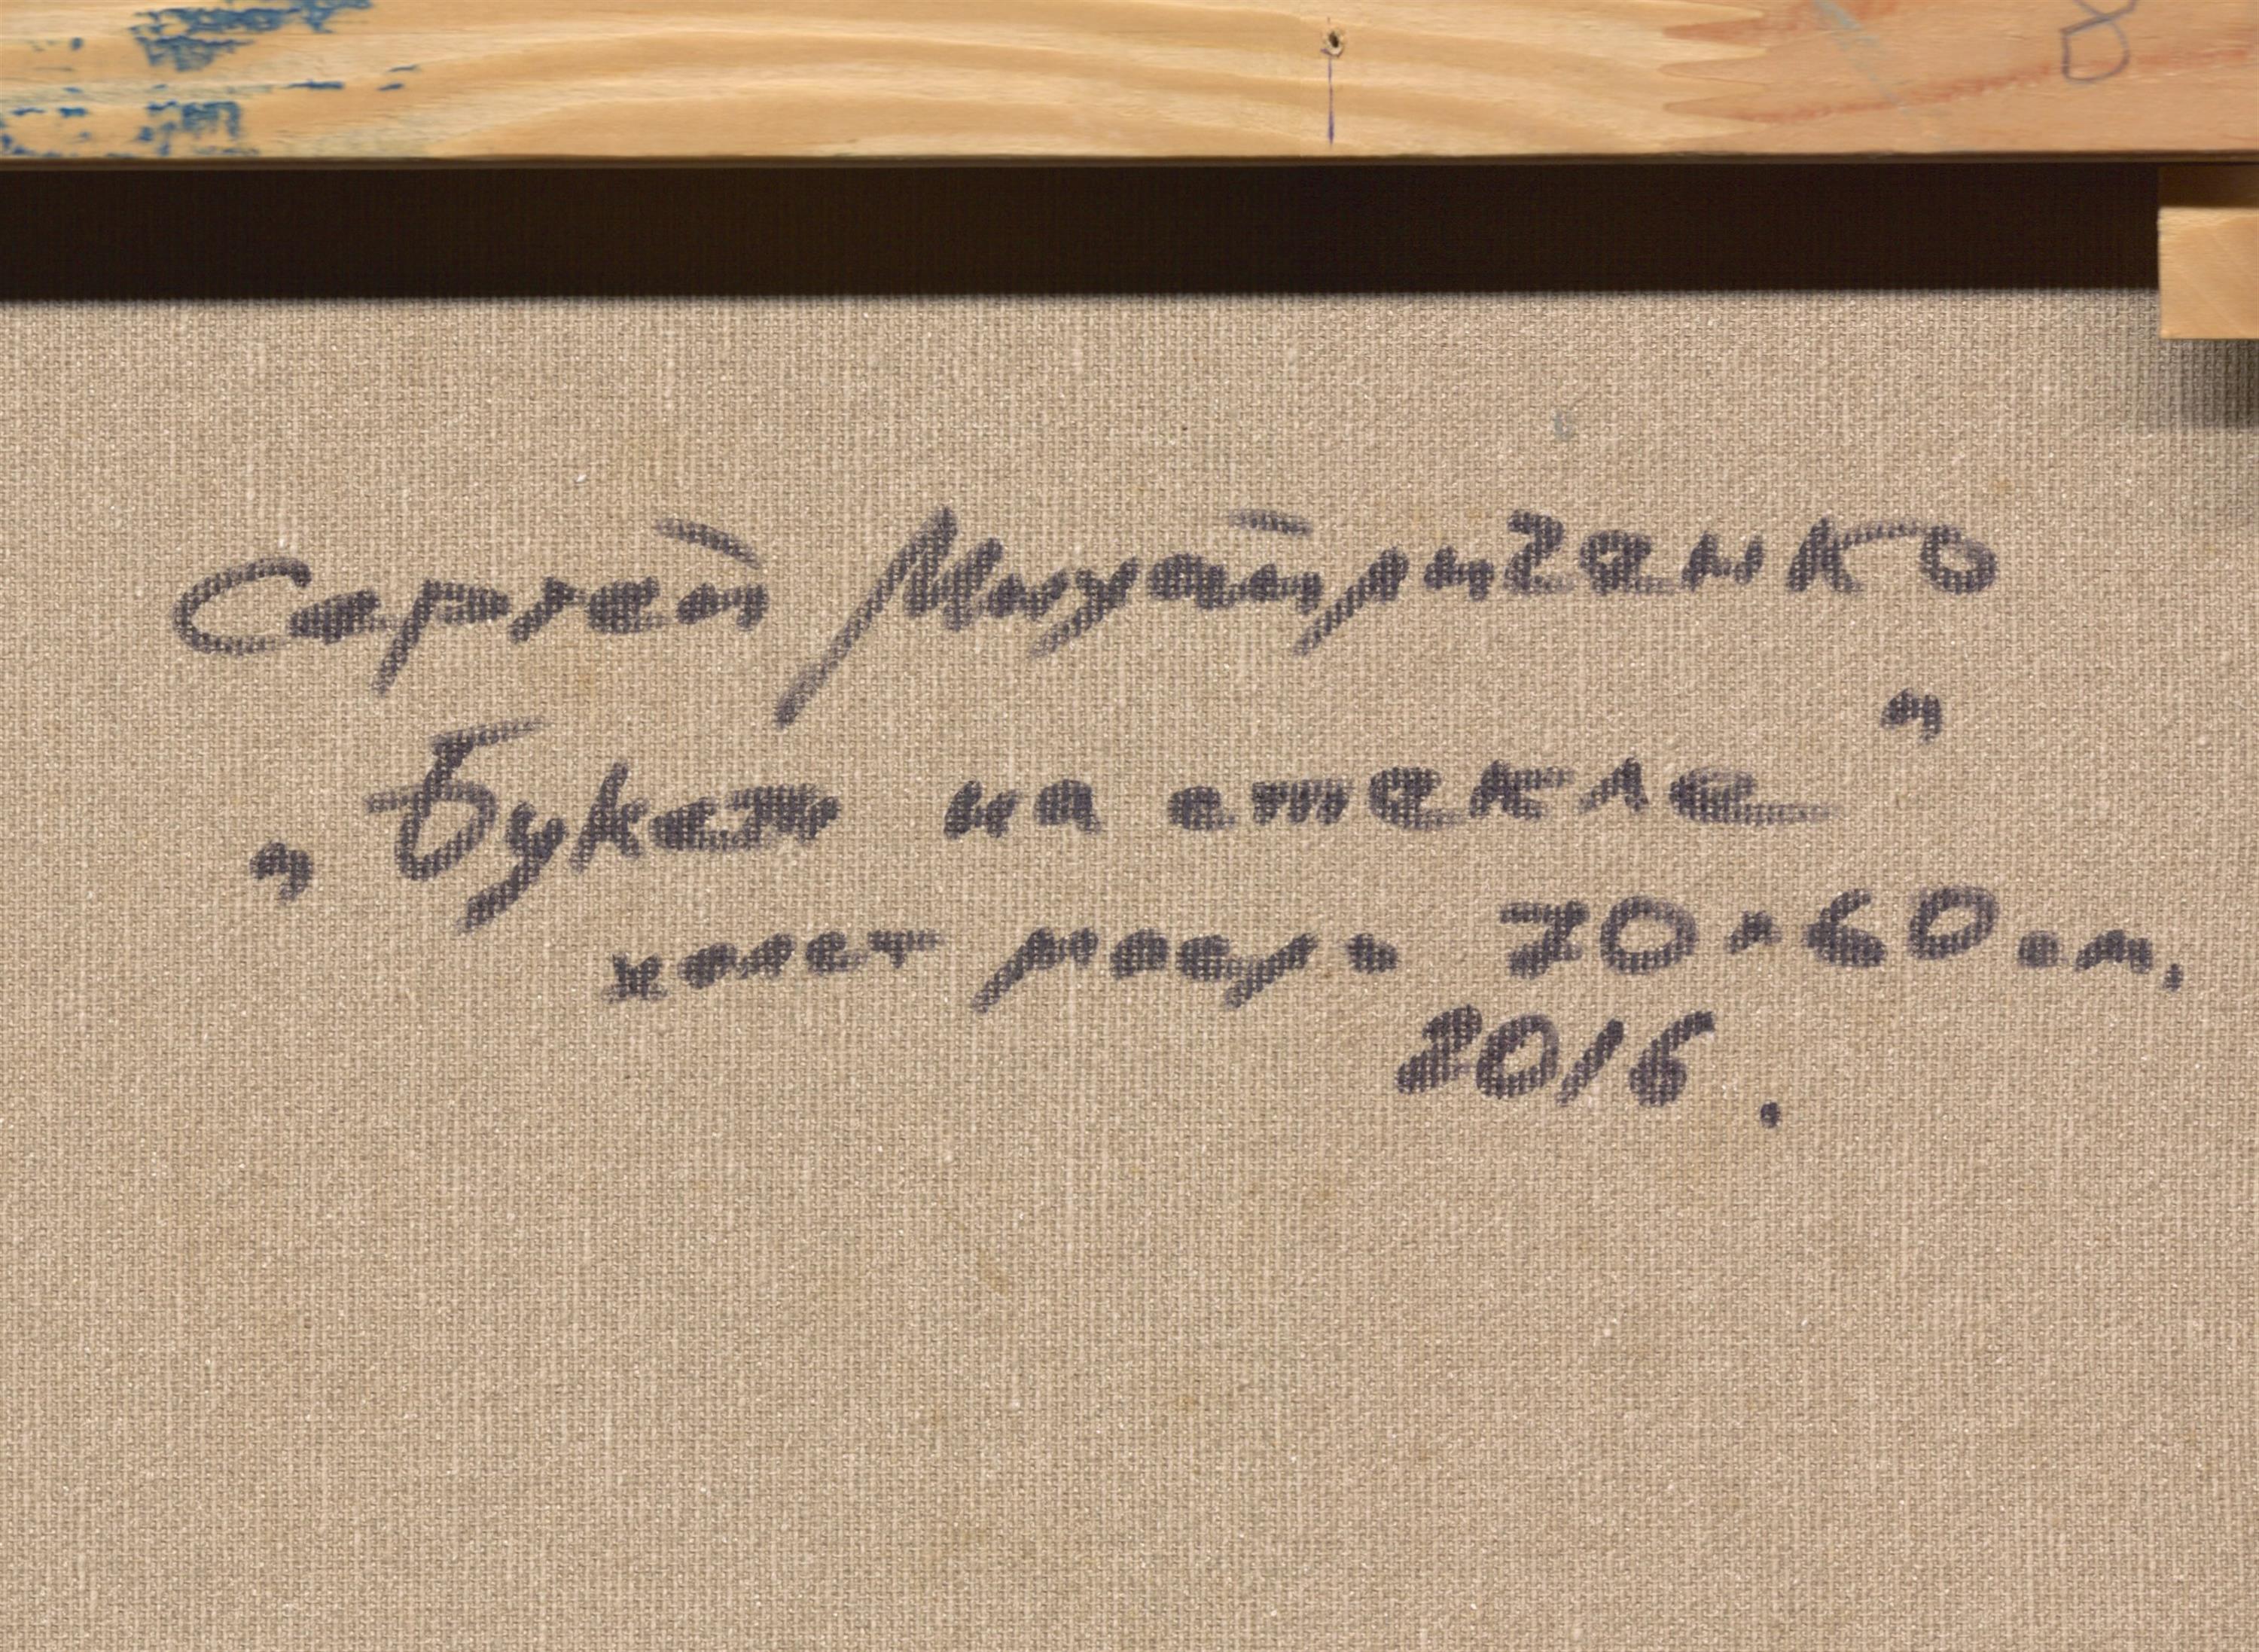 8
Сергей
„Букет на стекле”
холст масло 70×60 см.
2016.